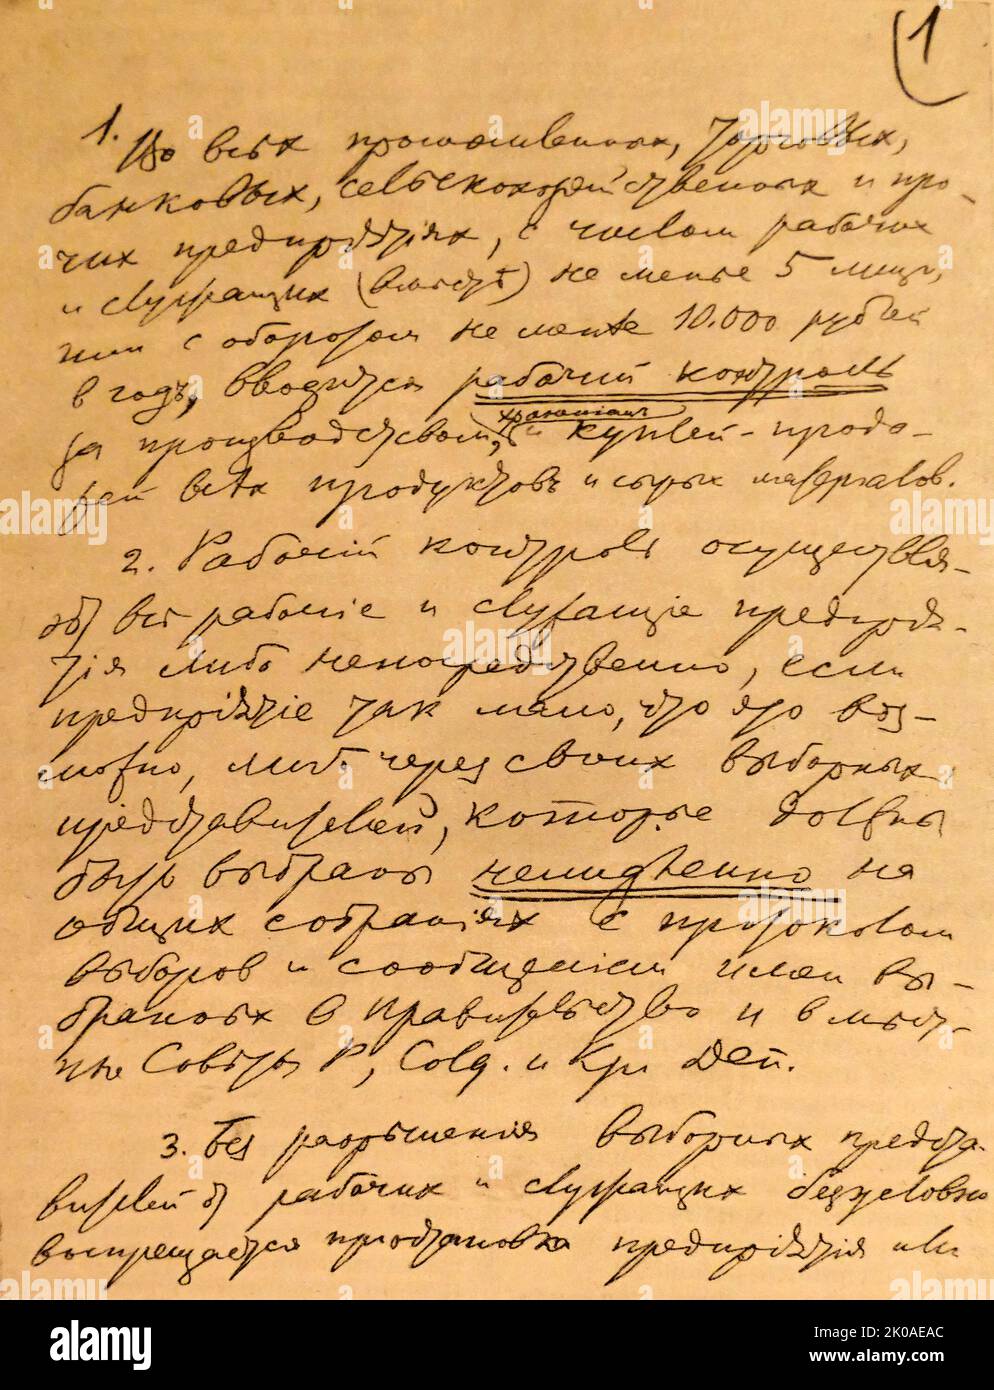 1
1. Во всѣх промышленных, торговых,
банковых, сельскохозяйственных и про-
чих предпріятіях, с числом рабочих
и служащих (вмѣстѣ) не менее 5 лиц,
или с оборотом не менее 10.000 рублей
в год, вводится рабочий контроль
хранением
за производством, и куплей-прода-
жей всѣх продуктовъ и сырых матерьалов.
2. Рабочій контроль осуществля-
ют всѣ рабочіе и служащіе предпрія-
тія либо непосредственно, если
предпріятіе так мало, что это воз-
можно, либо через своих выборных
представителей, которые должны
быть выбраны немедленно на
общих собраніях с протоколом
выборов и сообщеніем имен вы-
бранных в правительство и в мѣст-
ные Совѣты Р, Солд. и Кр. Деп.
3. Без разрѣшенія выборных предста-
вителей от рабочих и служащих безусловно
воспрещается приостановка предпріятія или
alamy
Image ID: 2K0AEAC
www.alamy.com